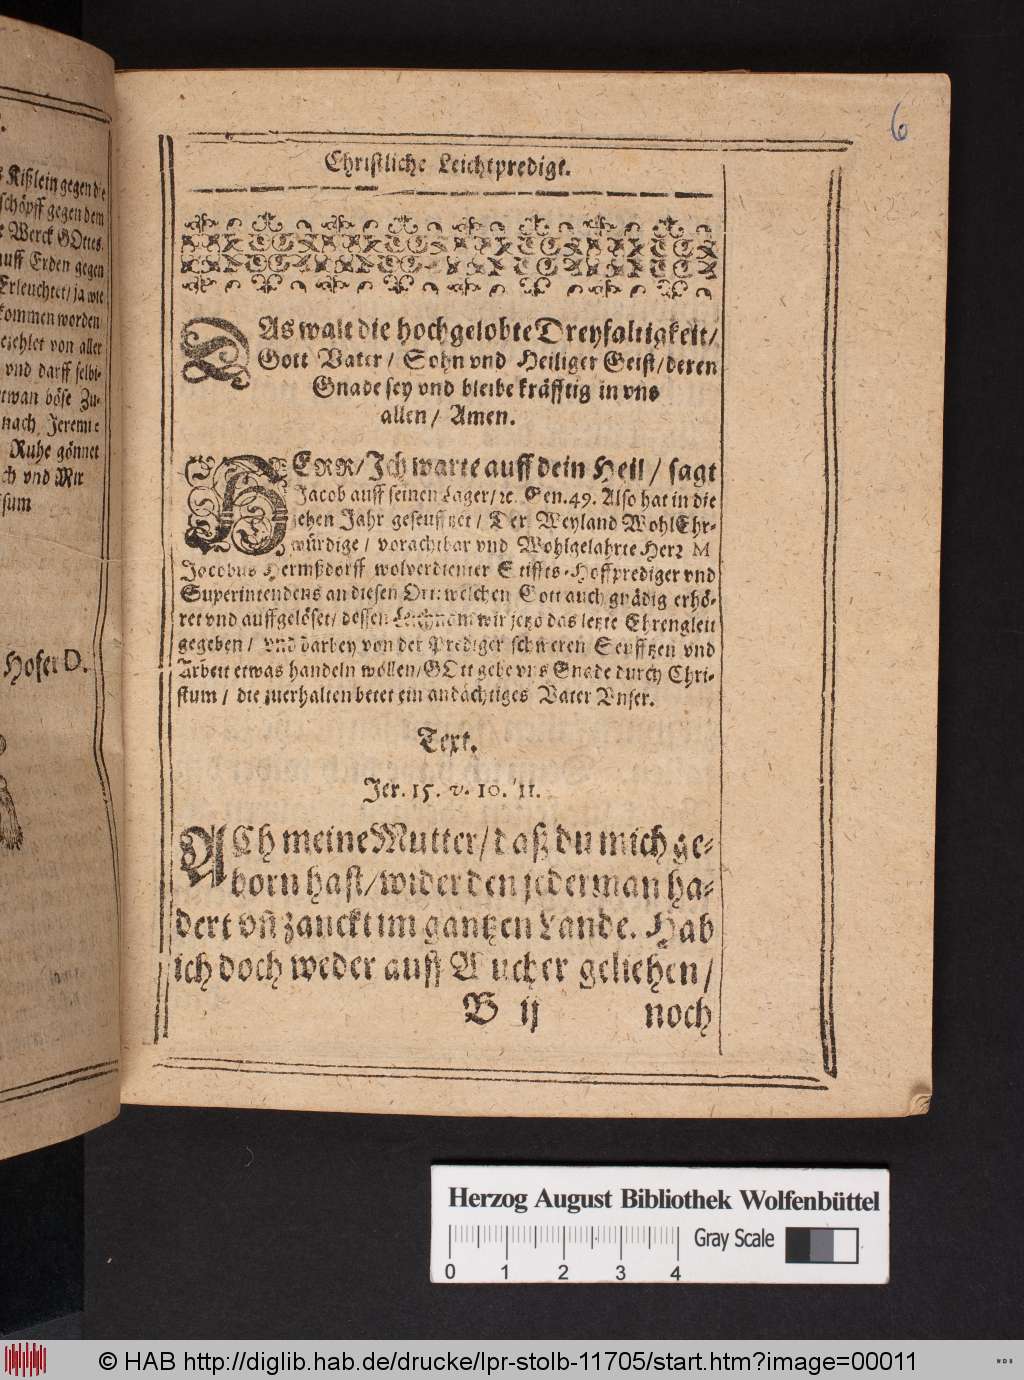 ß Kißlein gegen die
schöpff gegen dem
Werck GOttes
auff Erden gegen
Erleuchtet/ ja wie
kommen worden
ezehlet von aller
vnd darff selbi-
etwan böse Zu-
nach Jeremie
Ruhe gönnet
ch vnd Mit
sum
Hofer D.
6
Christliche Leichtpredigt.
DAs walt die hochgelobte Dreyfaltigkeit/
Gott Vater/ Sohn vnd Heiliger Geist/ deren
Gnade sey vnd bleibe kräfftig in vns
allen/ Amen.
HERR/ Ich warte auff dein Heil/ sagt
Jacob auff seinen Lager/ ꝛc. Gen. 49. Also hat in die
jetzen Jahr geseufftzet/ Der Weyland WohlEhr-
würdige/ vorachtbar vnd Wohlgelahrte Herꝛ M
Jacobus Hermßdorff wolverdienter Stiffts-Hoffprediger vnd
Superintendens an diesen Ort: welchen Gott auch gnädig erhö-
ret vnd auffgelöset/ dessen Leichnam wir jetzo das letzte Ehrengleit
gegeben/ vnd darbey von der Prediger schweren Seufftzen vnd
Arbeit etwas handeln wollen/ GOtt gebe vns Gnade durch Chri-
stum/ die zuerhalten betet ein andächtiges Vater Vnser.
Text.
Jer. 15. v. 10. 11.
ACh meine Mutter/ daß du mich ge-
born hast/ wider den jederman ha-
dert vñ zanckt im gantzen Lande. Hab
ich doch weder auff Wucher geliehen/
B ij noch
Herzog August Bibliothek Wolfenbüttel
Gray Scale
0 1 2 3 4
© HAB http://diglib.hab.de/drucke/lpr-stolb-11705/start.htm?image=00011